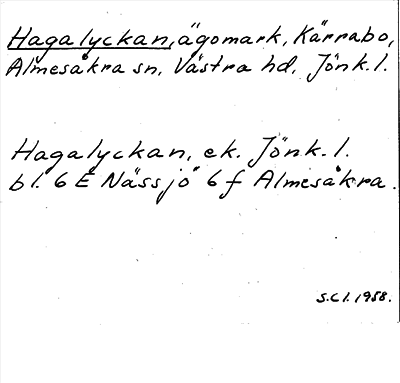 Hagalyckan, ägomark, Kärrabo,
Almesåkra sn, Västra hd, Jönk. l.
Hagalyckan, ek. Jönk. l.
bl. 6 E Nässjö 6 f Almesåkra.
S.C.l. 1958.